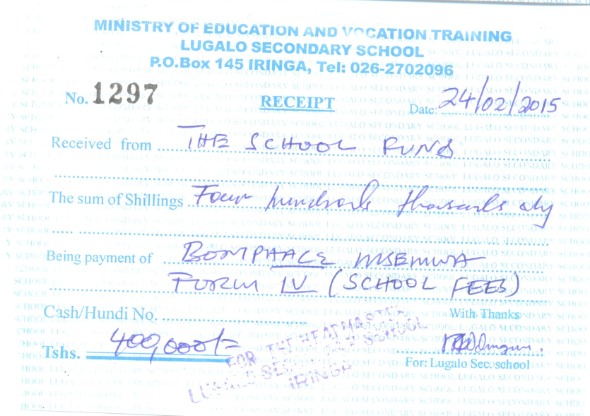 MINISTRY OF EDUCATION AND VOCATION TRAINING
LUGALO SECONDARY SCHOOL
P.O.Box 145 IRINGA, Tel: 026-2702096
No. 1297 RECEIPT Date 24/02/2015
Received from THE SCHOOL FUND
The sum of Shillings Four hundreds thousands only
Being payment of MSEMWA
FORM IV (SCHOOL FEES)
Cash/Hundi No. With Thanks
Tshs. 400,000/=
For: Lugalo Sec. school
FOR THE HEADMASTER
LUGALO SECONDARY SCHOOL
IRINGA